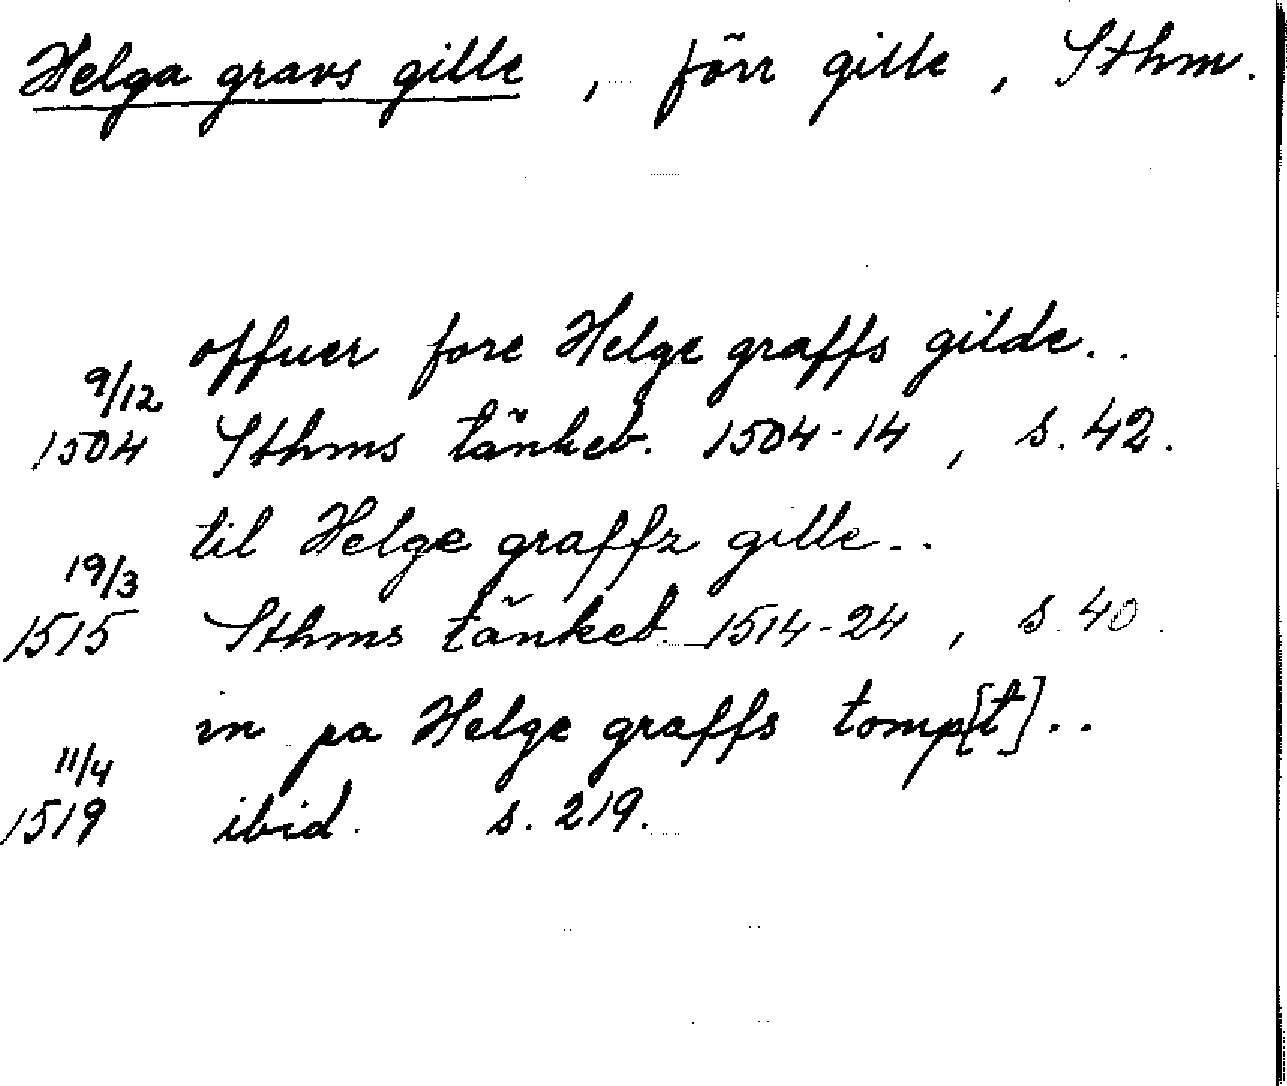 Helga gravs gille, förr gille, Sthm.
offuer fore Helge graffs gilde..
9/12
1504 Sthms tänkeb. 1504-14, s. 42.
til Helge graffz gille..
19/3
1515 Sthms tänkeb. 1514-24, s. 40.
in pa Helge graffs tomp[t]..
11/4
1519 ibid. s. 219.